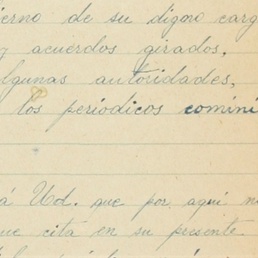 ierno de su digno carg
y acuerdos girados,
lgunas autoridades,
los periodicos comini
á Ud. que por aquí n
ue cita en su presente